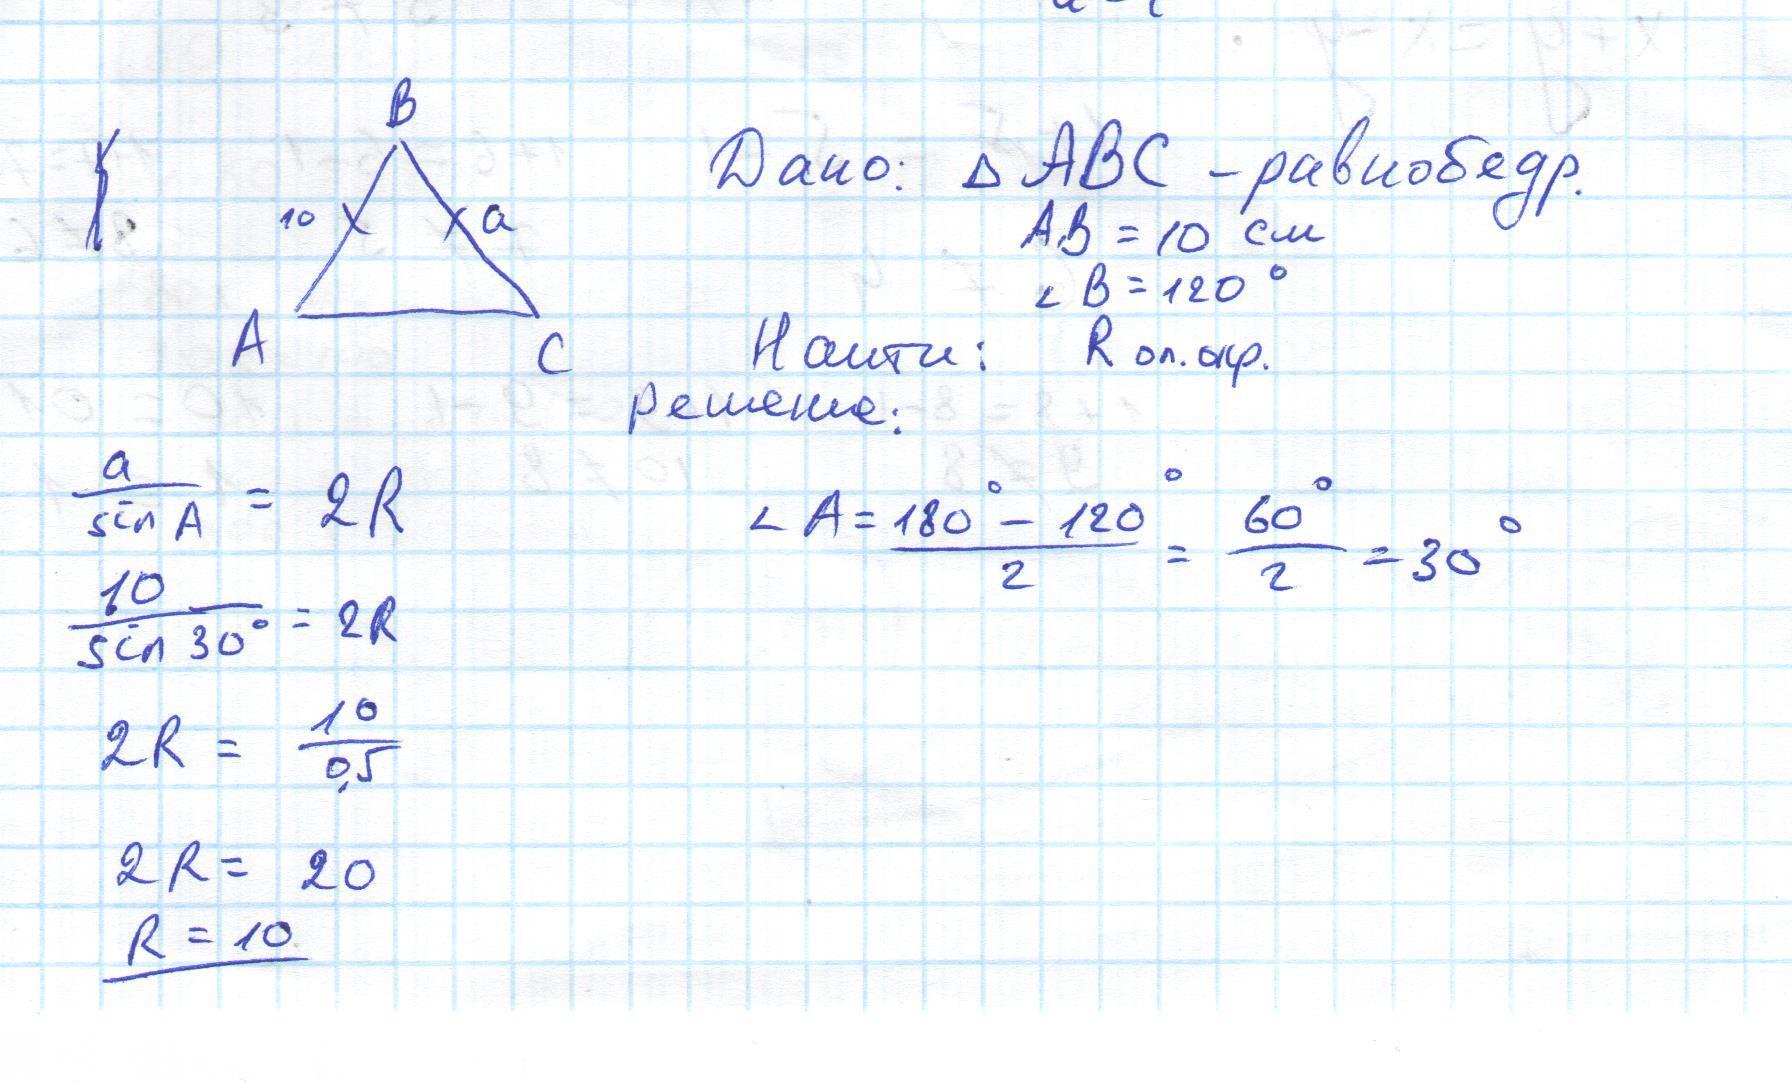 B
10
a
A
C
Дано: △ ABC - равнобедр.
AB = 10 см
∠B = 120°
Найти: R оп.окр.
решение:
a/sin A = 2R
∠A = (180° - 120°)/2 = 60°/2 = 30°
10/sin 30° = 2R
2R = 10/0,5
2R = 20
R = 10